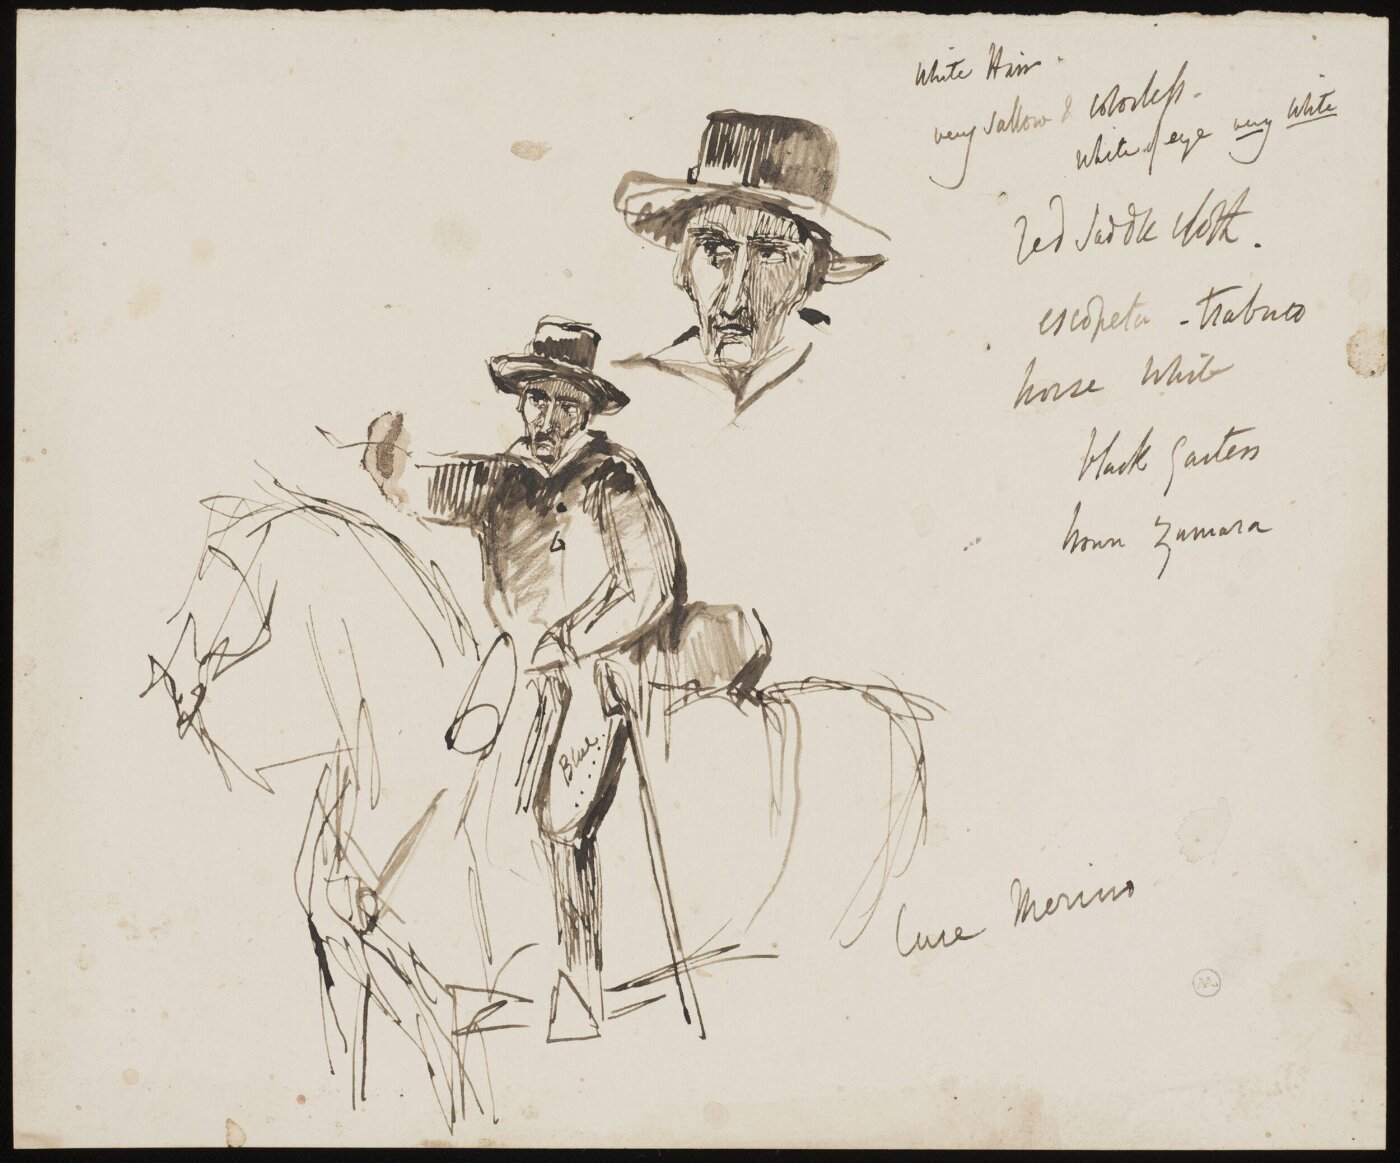 White Hair.
very sallow & colorless -
white of eye very white
red saddle cloth.
escopeta - trabuco
horse white
black garters
brown zamara
Blue
Cura Merino